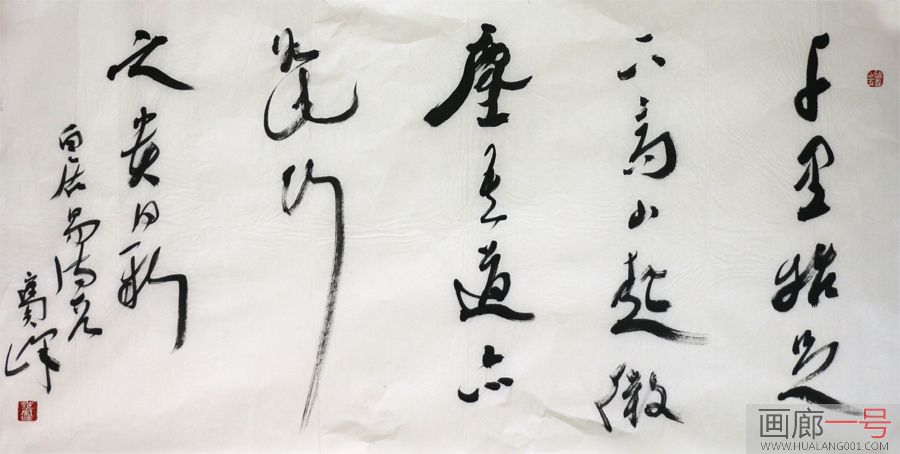 千里始足
下高山起微
塵吾道亦
如此行
之貴日新
白居易诗
画廊一号
WWW.HUALANG001.COM